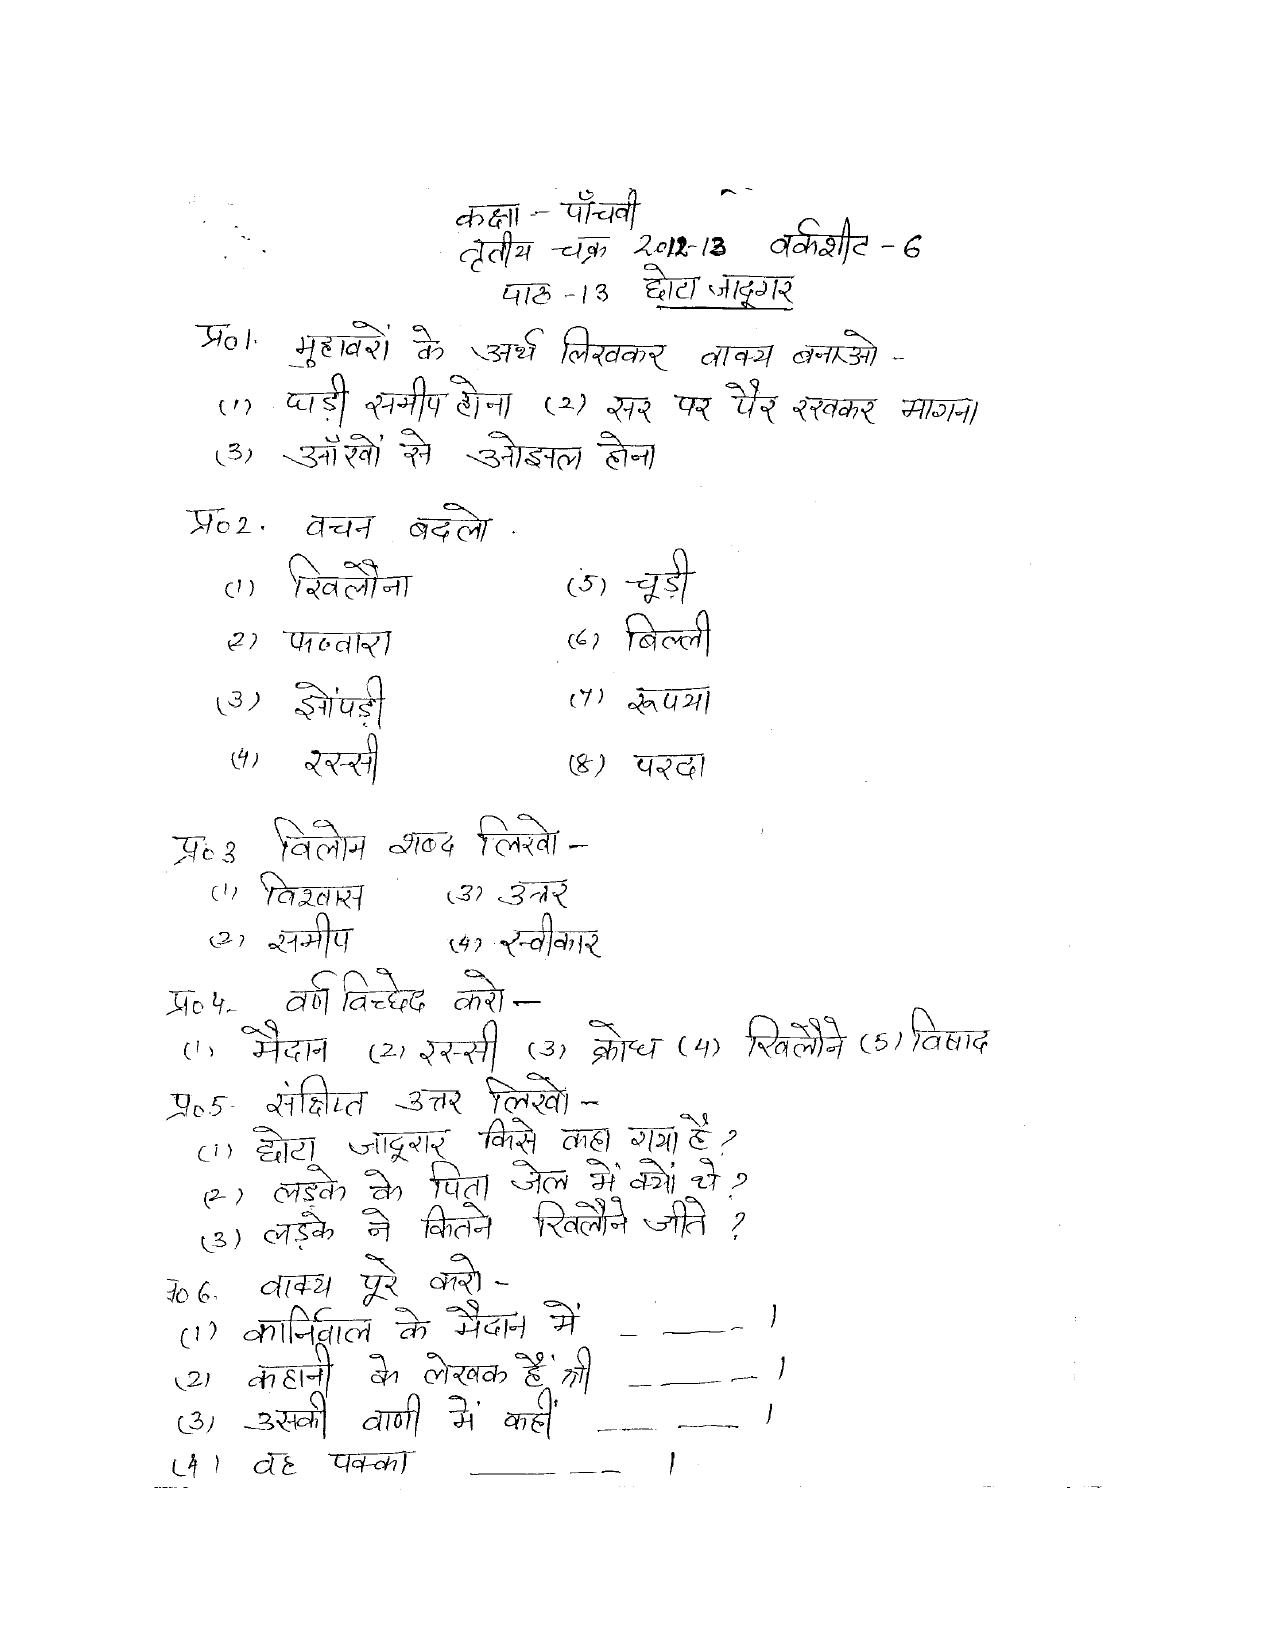 कक्षा - पाँचवी
तृतीय चक्र 2012-13 वर्कशीट - 6
पाठ -13 छोटा जादूगर
प्र०1. मुहावरों के अर्थ लिखकर वाक्य बनाओ -
(1) घड़ी समीप होना (2) सर पर पैर रखकर भागना
(3) आँखों से ओझल होना
प्र०2. वचन बदलो .
(1) खिलौना (5) चूड़ी
(2) फव्वारा (6) बिल्ली
(3) झोंपड़ी (7) रूपया
(4) रस्सी (8) परदा
प्र०3 विलोम शब्द लिखो -
(1) विश्वास (3) उत्तर
(2) समीप (4) स्वीकार
प्र०4. वर्ण विच्छेद करो -
(1) मैदान (2) रस्सी (3) क्रोध (4) खिलौने (5) विषाद
प्र०5. संक्षिप्त उत्तर लिखो -
(1) छोटा जादूगर किसे कहा गया है ?
(2) लड़के के पिता जेल में क्यों थे ?
(3) लड़के ने कितने खिलौने जीते ?
प्र०6. वाक्य पूरे करो -
(1) कार्निवाल के मैदान में _ ____ ।
(2) कहानी के लेखक हैं श्री ____ __ ।
(3) उसकी वाणी में कहीं __ ____ ।
(4) वह पक्का ____ __ ।